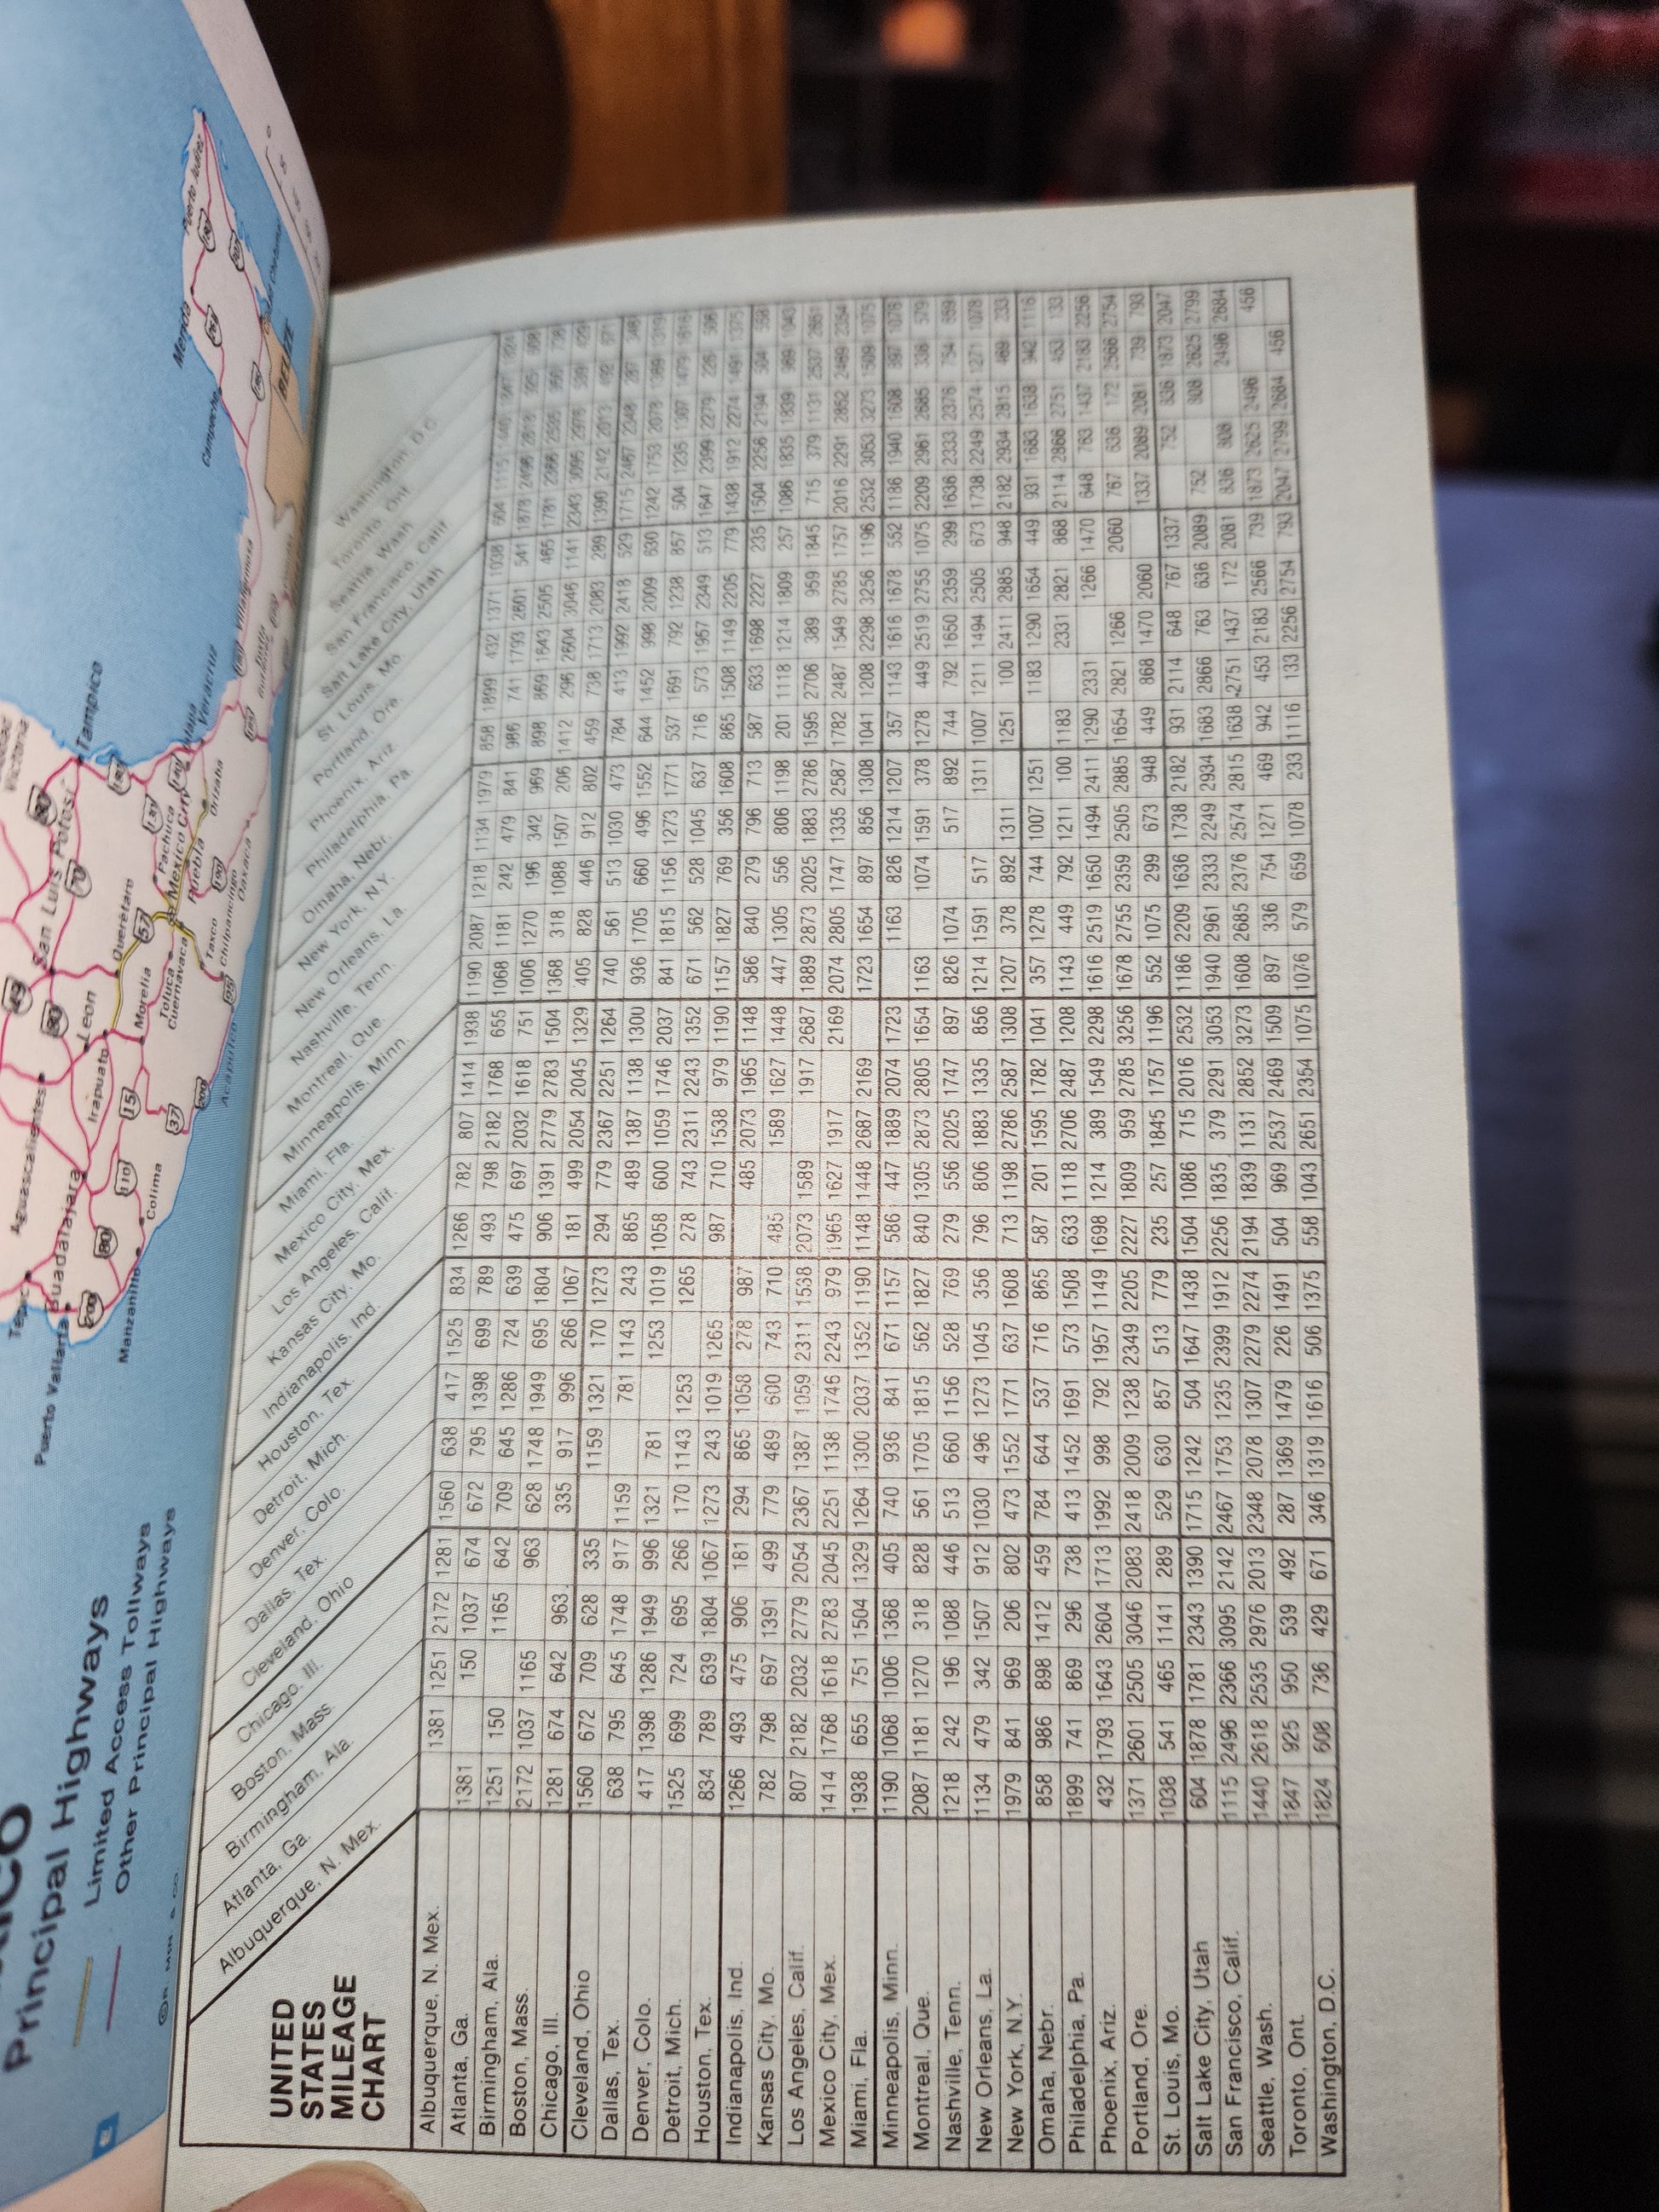 Mexico
Principal Highways
Limited Access Tollways
Other Principal Highways
San Luis Potosi
Tampico
Aguascalientes
Leon
Querétaro
Irapuato
Guadalajara
Morelia
Pachuca
Mexico City
Toluca
Cuernavaca
Puebla
Veracruz
Orizaba
Taxco
Chilpancingo
Oaxaca
Acapulco
Colima
Manzanillo
Puerto Vallarta
Villahermosa
Campeche
Merida
Puerto Juárez
BELIZE
UNITED
STATES
MILEAGE
CHART
Albuquerque, N. Mex.
Atlanta, Ga.
Birmingham, Ala.
Boston, Mass.
Chicago, Ill.
Cleveland, Ohio
Dallas, Tex.
Denver, Colo.
Detroit, Mich.
Houston, Tex.
Indianapolis, Ind.
Kansas City, Mo.
Los Angeles, Calif.
Mexico City, Mex.
Miami, Fla.
Minneapolis, Minn.
Montreal, Que.
Nashville, Tenn.
New Orleans, La.
New York, N.Y.
Omaha, Nebr.
Philadelphia, Pa.
Phoenix, Ariz.
Portland, Ore.
St. Louis, Mo.
Salt Lake City, Utah
San Francisco, Calif.
Seattle, Wash.
Toronto, Ont.
Washington, D.C.
Albuquerque, N. Mex. 1381 1251 2172 1281 1560 638 417 1525 834 1266 782 807 1414 1938 1190 2087 1218 1134 1979 858 1899 432 1371 1038 604 1115
Atlanta, Ga. 1381 150 1037 674 672 795 1398 699 789 493 798 2182 1768 655 1068 1181 242 479 841 986 741 1793 2601 541 1878 2496 2618 925 608
Birmingham, Ala. 1251 150 1165 642 709 645 1286 724 639 475 697 2032 1618 751 1006 1270 196 342 969 898 869 1643 2505 465 1781 2366 2535
Boston, Mass. 2172 1037 1165 963 628 1748 1949 695 1804 906 1391 2779 2783 1504 1368 318 1088 1507 206 1412 296 2604 3046 1141 2343 3095 2976
Chicago, Ill. 1281 674 642 963 335 917 996 266 1067 181 499 2054 2045 1329 405 828 446 912 802 459 738 1713 2083 289 1390 2142 2013 492 671
Cleveland, Ohio 1560 672 709 628 335 1159 1321 170 1273 294 779 2367 2251 1264 740 561 513 1030 473 784 413 1992 2418 529 1715 2467 2348 287
Dallas, Tex. 638 795 645 1748 917 1159 781 1143 243 865 489 1387 1138 1300 936 1705 660 496 1552 644 1452 998 2009 630 1242 1753 2078 1369 1319
Denver, Colo. 417 1398 1286 1949 996 1321 781 1253 1019 1058 600 1059 1746 2037 841 1815 1156 1273 1771 537 1691 792 1238 857 504 1235 1307 1479 1616
Detroit, Mich. 1525 699 724 695 266 170 1143 1253 1265 278 743 2311 2243 1352 671 562 528 1045 637 716 573 1957 2349 513 1647 2399 2279 226 506
Houston, Tex. 834 789 639 1804 1067 1273 243 1019 1265 987 710 1538 979 1190 1157 1827 769 356 1608 865 1508 1149 2205 779 1438 1912 2274 1491 1375
Indianapolis, Ind. 1266 493 475 906 181 294 865 1058 278 987 485 2073 1965 1148 586 840 279 796 713 587 633 1698 2227 235 1504 2256 2194 504 558
Kansas City, Mo. 782 798 697 1391 499 779 489 600 743 710 485 1589 1627 1448 447 1305 556 806 1198 201 1118 1214 1809 257 1086 1835 1839 969 1043
Los Angeles, Calif. 807 2182 2032 2779 2054 2367 1387 1059 2311 1538 2073 1589 1917 2687 1889 2873 2025 1883 2786 1595 2706 389 959 1845 715 379 1131 2537 2651
Mexico City, Mex. 1414 1768 1618 2783 2045 2251 1138 1746 2243 979 1965 1627 1917 2169 2074 2805 1747 1335 2587 1782 2487 1549 2785 1757 2016 2291 2852 2469 2354
Miami, Fla. 1938 655 751 1504 1329 1264 1300 2037 1352 1190 1148 1448 2687 2169 1723 1654 897 856 1308 1041 1208 2298 3256 1196 2532 3053 3273 1509 1075
Minneapolis, Minn. 1190 1068 1006 1368 405 740 936 841 671 1157 586 447 1889 2074 1723 1163 826 1214 1207 357 1143 1616 1678 552 1186 1940 1608 897 1076
Montreal, Que. 2087 1181 1270 318 828 561 1705 1815 562 1827 840 1305 2873 2805 1654 1163 1074 1591 378 1278 449 2519 2755 1075 2209 2961 2685 336 579
Nashville, Tenn. 1218 242 196 1088 446 513 660 1156 528 769 279 556 2025 1747 897 826 1074 517 892 744 792 1650 2359 299 1636 2333 2376 754 659
New Orleans, La. 1134 479 342 1507 912 1030 496 1273 1045 356 796 806 1883 1335 856 1214 1591 517 1311 1007 1211 1494 2505 673 1738 2249 2574 1271 1078
New York, N.Y. 1979 841 969 206 802 473 1552 1771 637 1608 713 1198 2786 2587 1308 1207 378 892 1311 1251 100 2411 2885 948 2182 2934 2815 469 233
Omaha, Nebr. 858 986 898 1412 459 784 644 537 716 865 587 201 1595 1782 1041 357 1278 744 1007 1251 1183 1290 1654 449 931 1683 1638 942 1116
Philadelphia, Pa. 1899 741 869 296 738 413 1452 1691 573 1508 633 1118 2706 2487 1208 1143 449 792 1211 100 1183 2331 2821 868 2114 2866 2751 453 133
Phoenix, Ariz. 432 1793 1643 2604 1713 1992 998 792 1957 1149 1698 1214 389 1549 2298 1616 2519 1650 1494 2411 1290 2331 1266 1470 648 763 1437 2183 2256
Portland, Ore. 1371 2601 2505 3046 2083 2418 2009 1238 2349 2205 2227 1809 959 2785 3256 1678 2755 2359 2505 2885 1654 2821 1266 2060 767 636 172 2566 2754
St. Louis, Mo. 1038 541 465 1141 289 529 630 857 513 779 235 257 1845 1757 1196 552 1075 299 673 948 449 868 1470 2060 1337 2089 2081 739 793
Salt Lake City, Utah 604 1878 1781 2343 1390 1715 1242 504 1647 1438 1504 1086 715 2016 2532 1186 2209 1636 1738 2182 931 2114 648 767 1337 752 836 1873 2047
San Francisco, Calif. 1115 2496 2366 3095 2142 2467 1753 1235 2399 1912 2256 1835 379 2291 3053 1940 2961 2333 2249 2934 1683 2866 763 636 2089 752 808 2625 2799
Seattle, Wash. 1440 2618 2535 2976 2013 2348 2078 1307 2279 2274 2194 1839 1131 2852 3273 1608 2685 2376 2574 2815 1638 2751 1437 172 2081 836 808 2496 2684
Toronto, Ont. 1847 925 950 539 492 287 1369 1479 226 1491 504 969 2537 2469 1509 897 336 754 1271 469 942 453 2183 2566 739 1873 2625 2496 456
Washington, D.C. 1824 608 736 429 671 346 1319 1616 506 1375 558 1043 2651 2354 1075 1076 579 659 1078 233 1116 133 2256 2754 793 2047 2799 2684 456